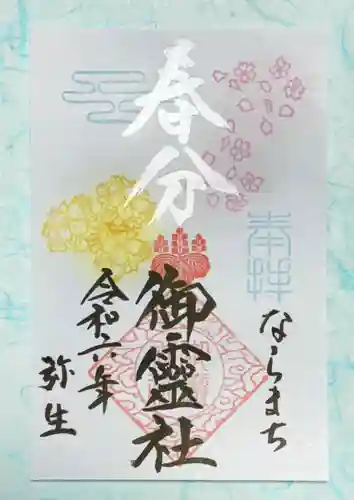 春分
奉拝
ならまち
御靈社
令和六年
弥生